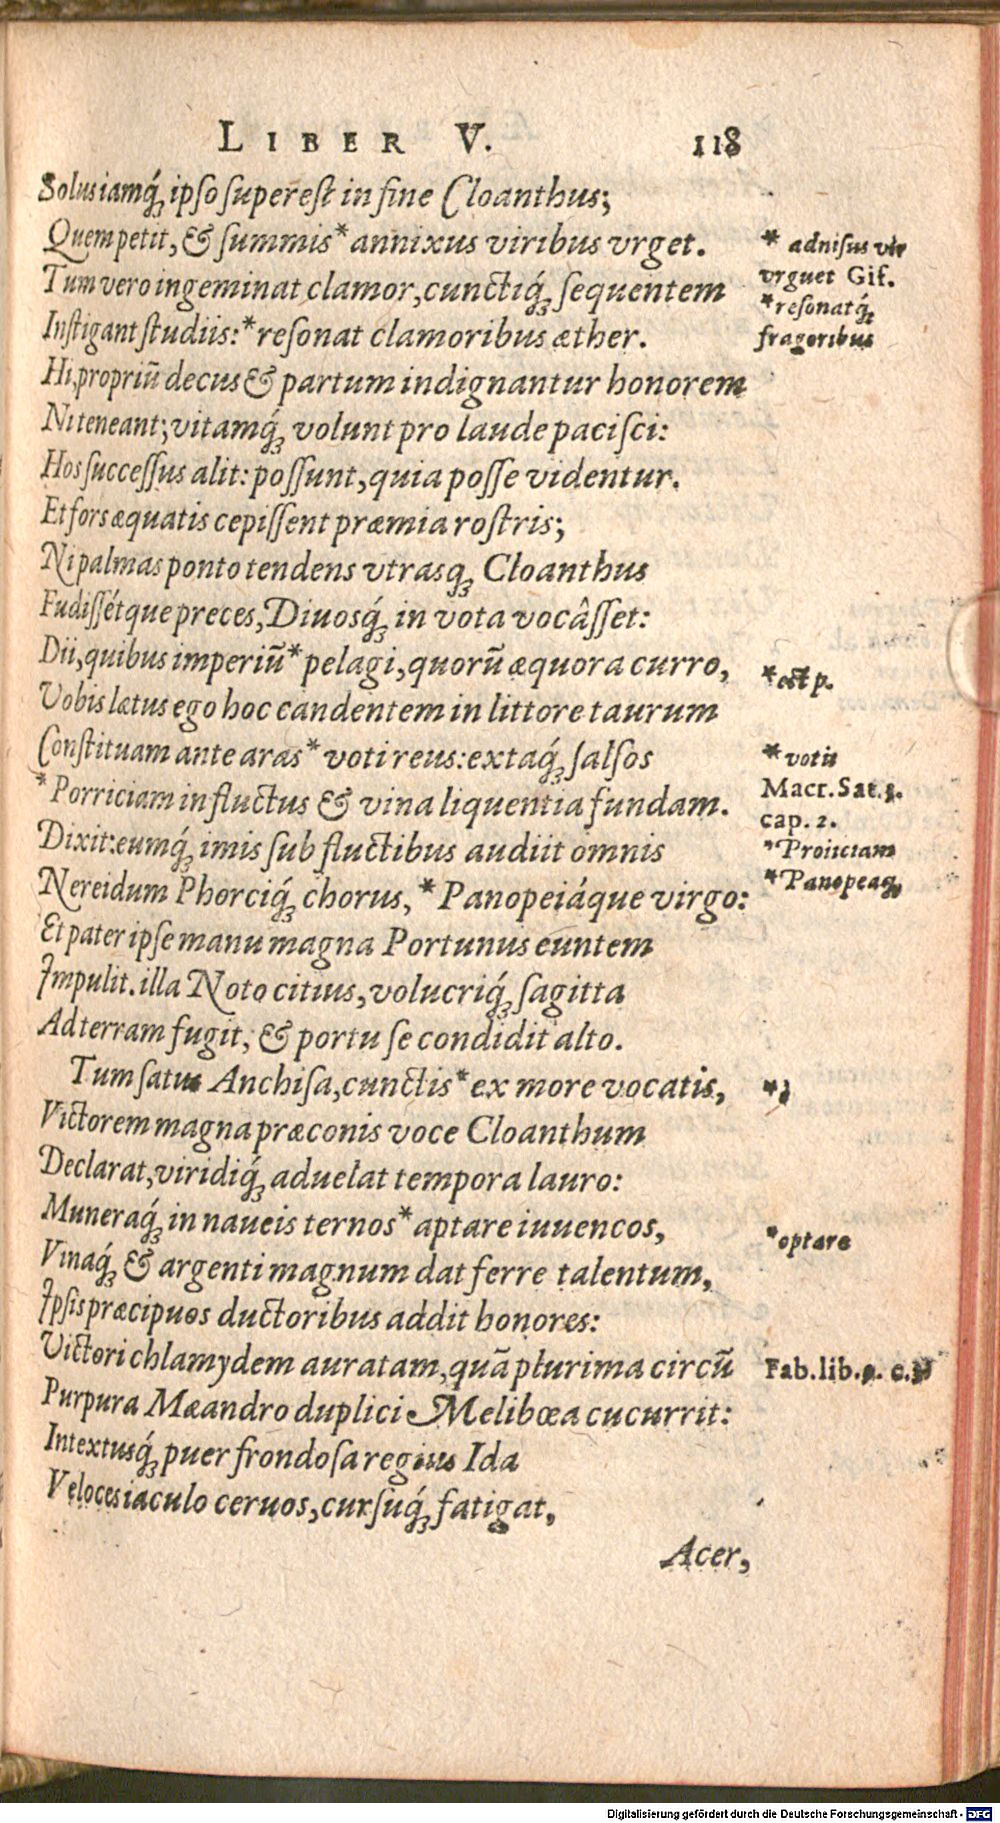 LIBER V. 118
Solus iamq́; ipso superest in fine Cloanthus;
Quem petit, & summis* annixus viribus vrget.
* adnisus vir
Tum vero ingeminat clamor, cunctiq́; sequentem
vrguet Gif.
Instigant studiis: * resonat clamoribus æther.
* resonatq́;
fragoribus
Hi, propriū decus & partum indignantur honorem
Ni teneant; vitamq́; volunt pro laude pacisci:
Hos successus alit: possunt, quia posse videntur.
Et fors æquatis cepissent præmia rostris;
Ni palmas ponto tendens vtrasq; Cloanthus
Fudissétque preces, Diuosq́; in vota vocâsset:
Dii, quibus imperiū* pelagi, quorū æquora curro,
* est p.
Vobis lætus ego hoc candentem in littore taurum
Constituam ante aras* voti reus: extaq́; salsos
* votis
* Porriciam in fluctus & vina liquentia fundam.
Macr. Sat. 3.
cap. 2.
Dixit: eumq́; imis sub fluctibus audiit omnis
* Proiiciam
Nereidum Phorciq́; chorus, * Panopeiáque virgo:
* Panopeaq;
Et pater ipse manu magna Portunus euntem
Impulit. illa Noto citius, volucriq́; sagitta
Ad terram fugit, & portu se condidit alto.
Tum satus Anchisa, cunctis* ex more vocatis,
Victorem magna præconis voce Cloanthum
Declarat, viridiq́; aduelat tempora lauro:
Muneraq́; in naueis ternos* aptare iuuencos,
* optare
Vinaq́; & argenti magnum dat ferre talentum,
Ipsis præcipuos ductoribus addit honores:
Victori chlamydem auratam, quā plurima circū
Fab. lib. c.
Purpura Mæandro duplici Melibœa cucurrit:
Intextusq́; puer frondosa regius Ida
Veloces iaculo ceruos, cursuq́; fatigat,
Acer,
Digitalisierung gefördert durch die Deutsche Forschungsgemeinschaft - DFG